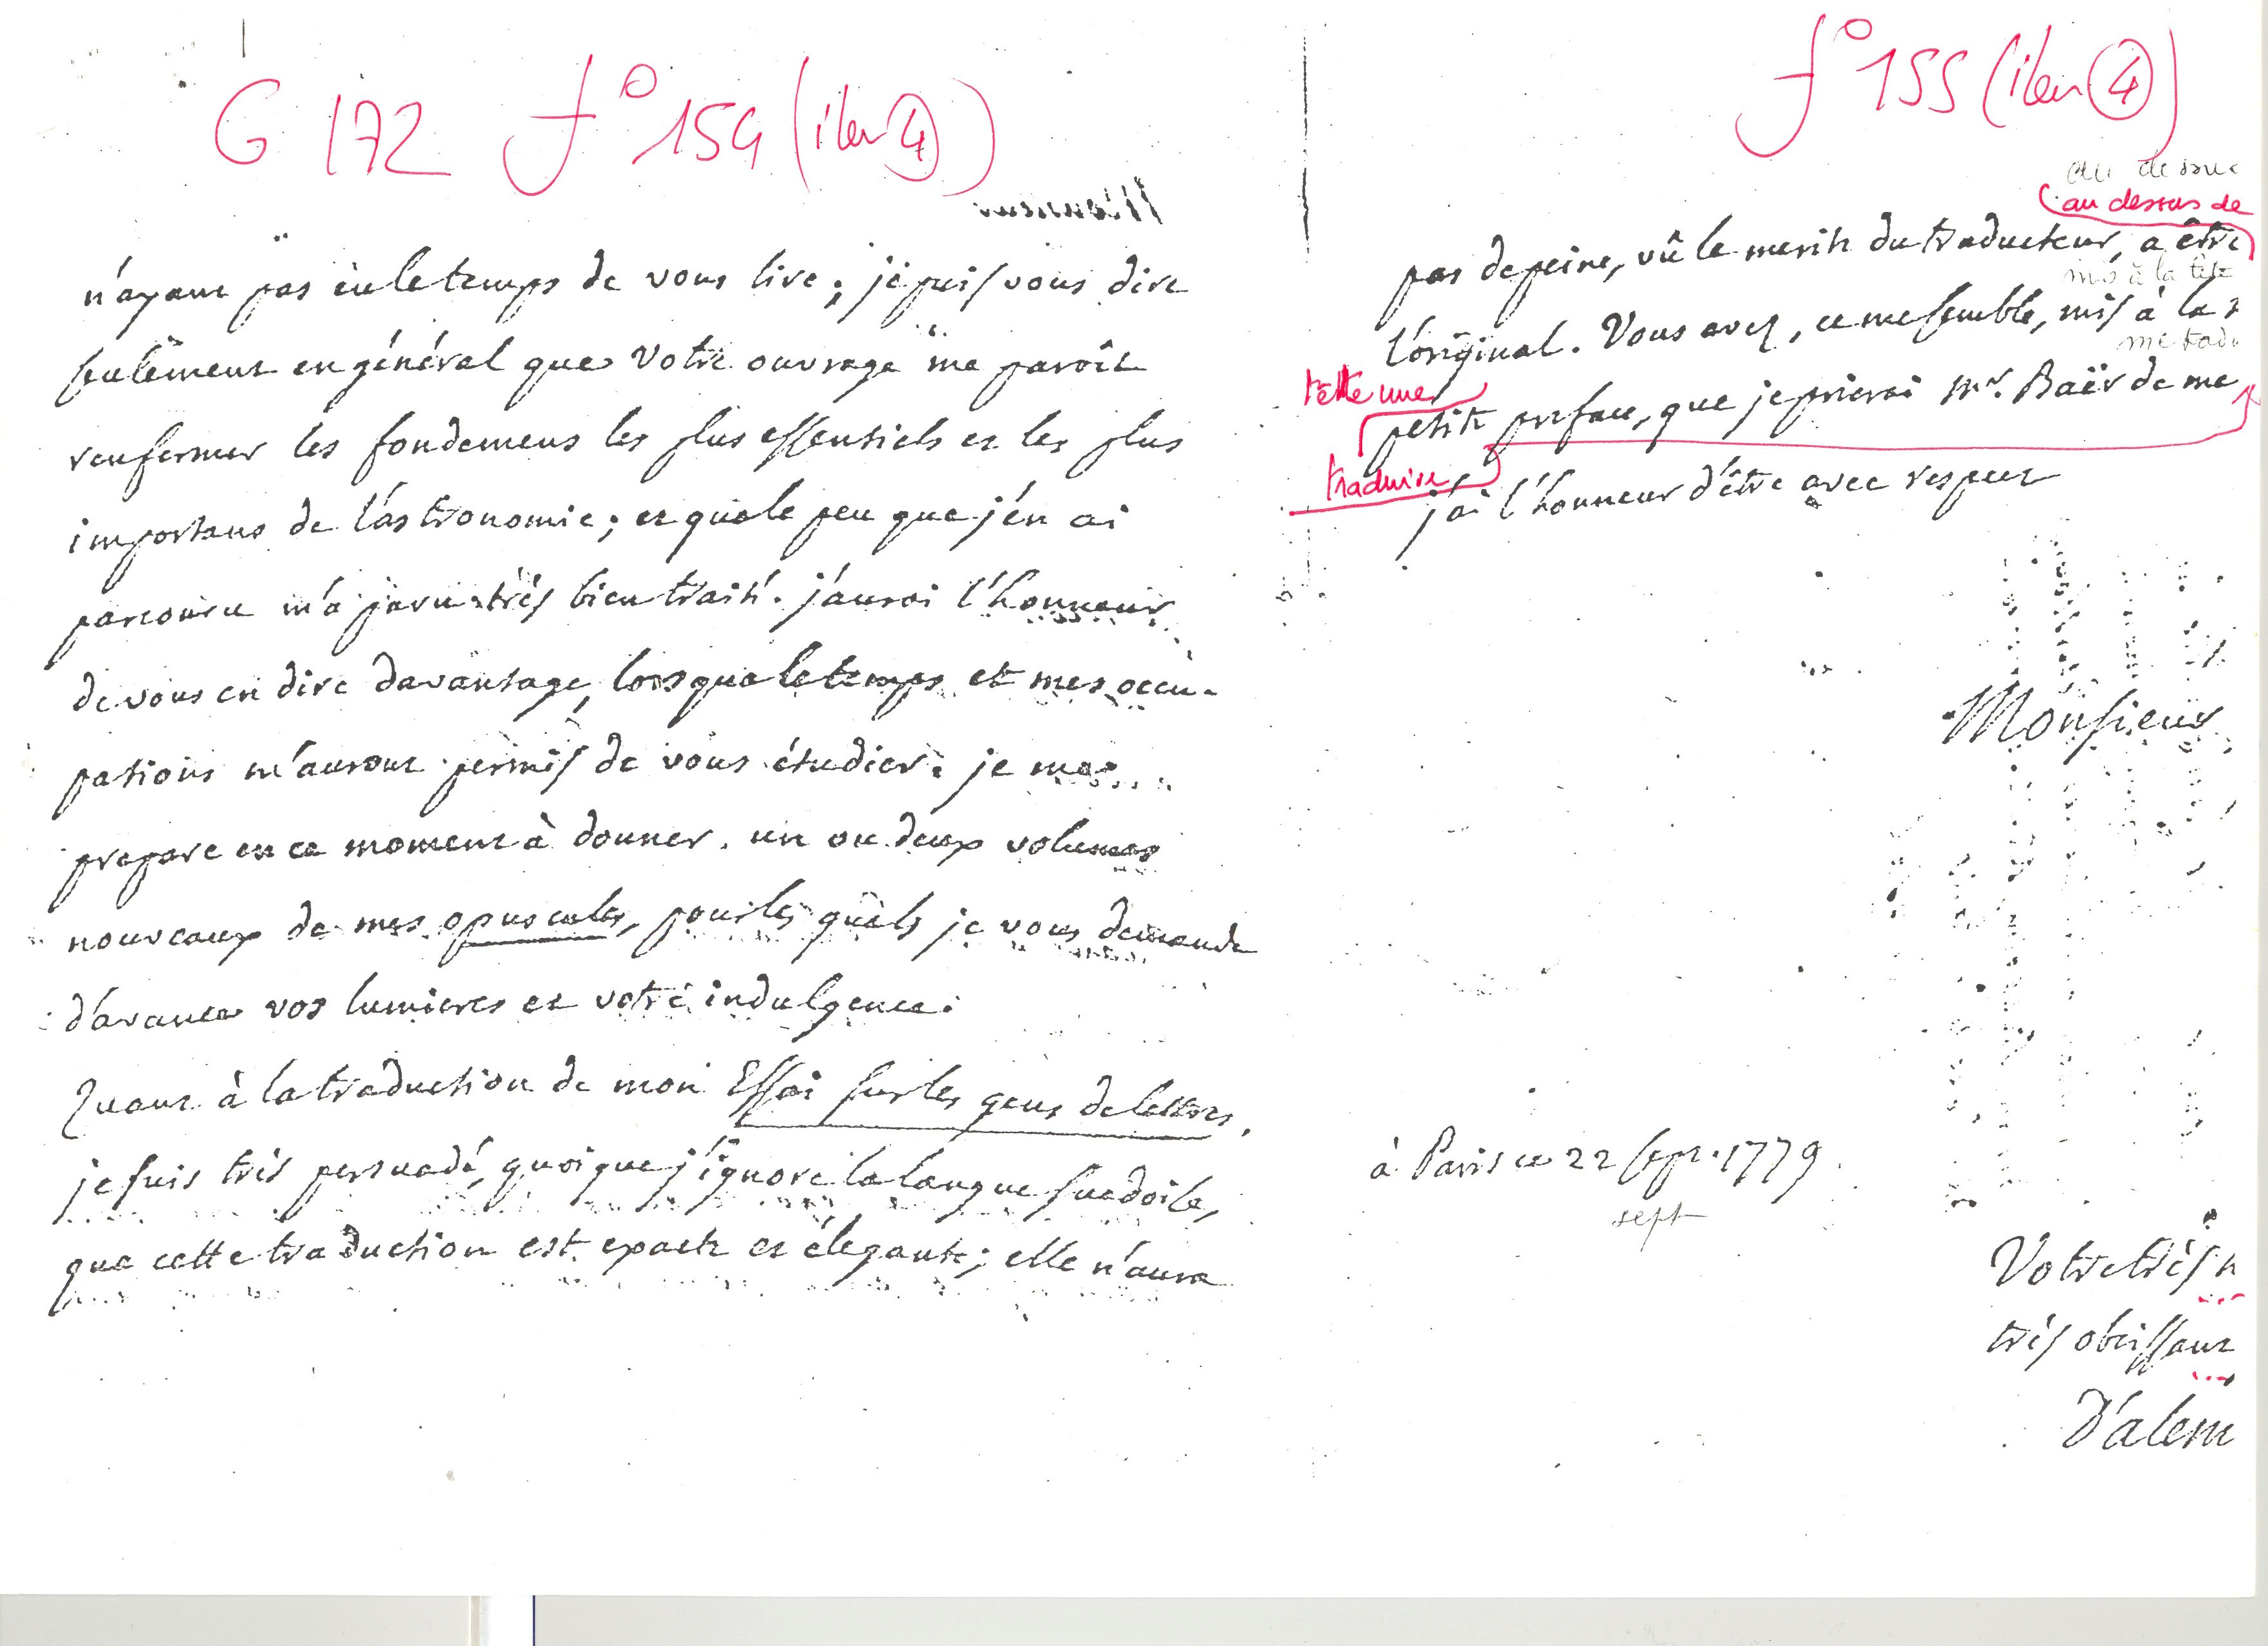 G 172 f° 154 (item 4)
n'ayant pas eu le temps de vous lire; je puis vous dire
seulement en général que votre ouvrage me paroît
renfermer les fondemens les plus essentiels et les plus
importans de l'astronomie; et que le peu que j'en ai
parcouru m'a paru très bien traité. j'aurai l'honneur
de vous en dire davantage, lorsque le temps et mes occu-
pations m'auront permis de vous étudier. je me
prepare en ce moment à donner un ou deux volumes
nouveaux de mes opuscules, pour les quels je vous demande
d'avance vos lumieres et votre indulgence.
Quant à la traduction de mon Essai sur les gens de lettres,
je suis très persuadé, quoique j'ignore la langue suedoise,
que cette traduction est exacte et élegante; elle n'aura
f° 155 (item 4)
au dessus
au dessus de
pas de peine, vû le merite du traducteur, a être
mis à la tête
l'original. Vous avez, ce me semble, mis à la
me tradu
tête une
petite preface, que je prierai Mr. Baër de me
traduire
j'ai l'honneur d'être avec respect
Monsieur
à Paris ce 22 sept. 1779
sept
Votre très h
très obeissant
D'alem